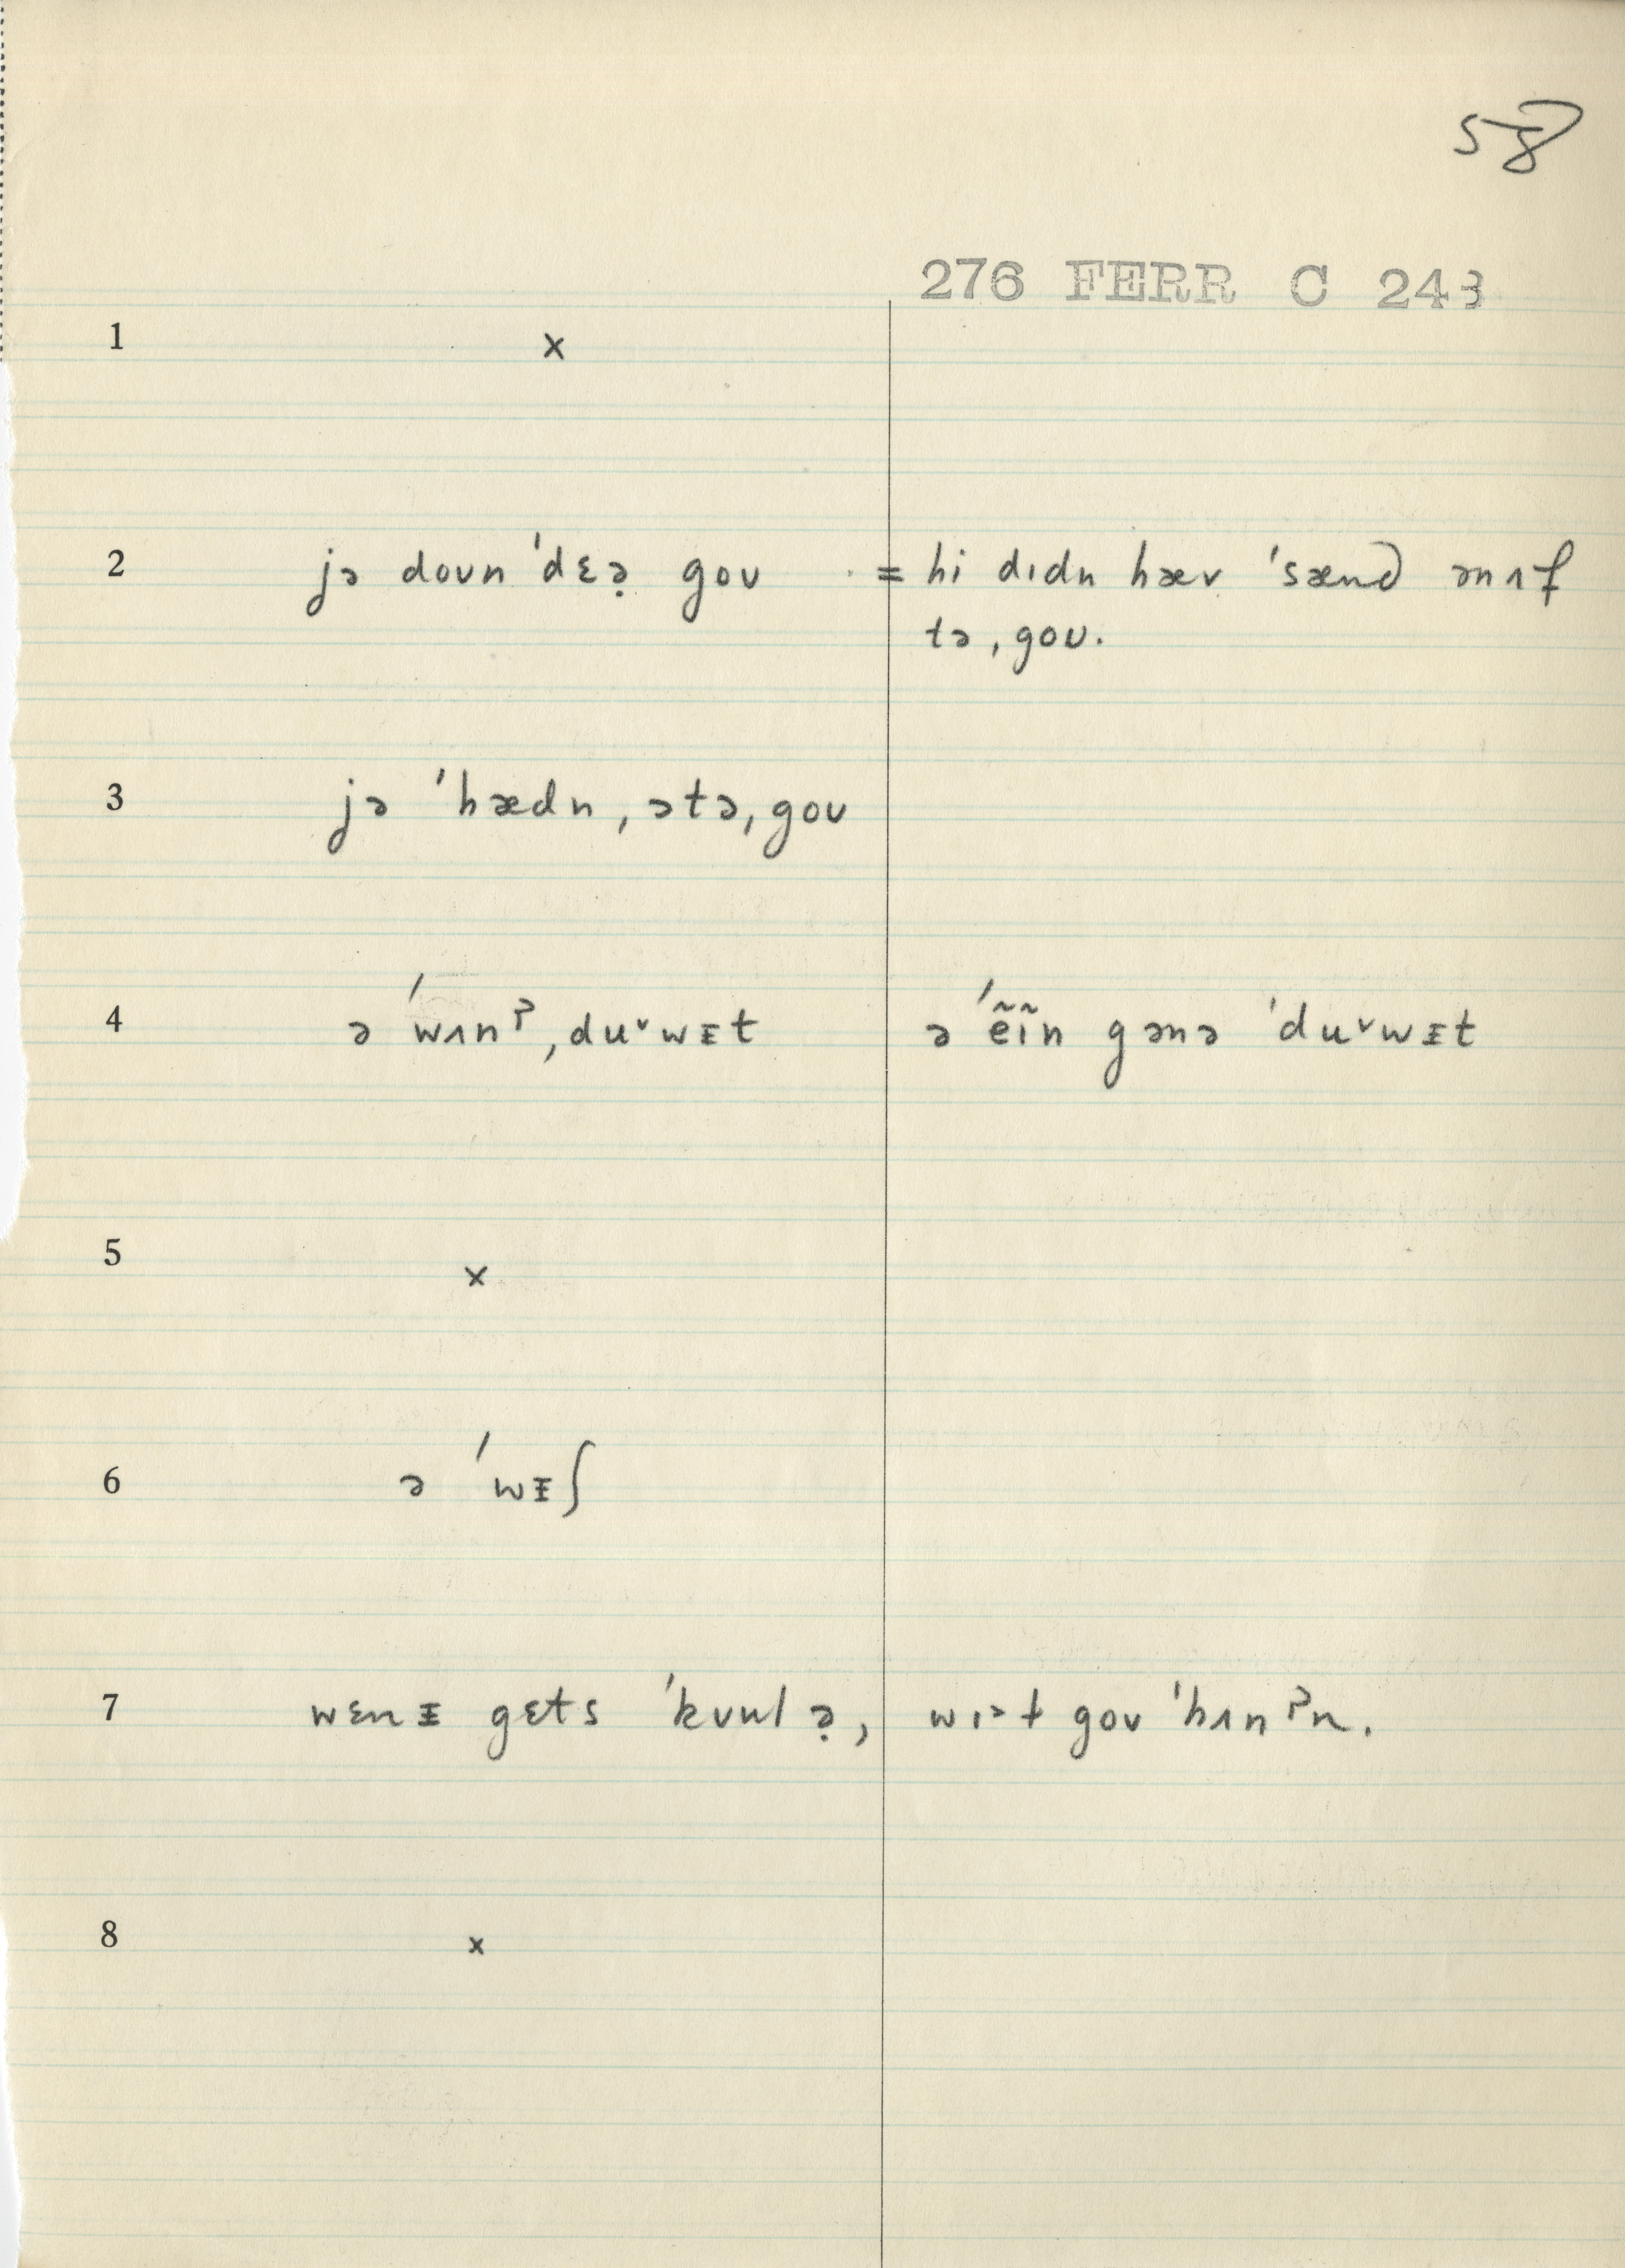 58
276 FERR C 243
1 x
2 jə doʊn ˈdɛə̣ goʊ = hi dɪdn hæv ˈsænd ənʌf
tə ˌgoʊ.
3 jə ˈhædn ˌətə ˌgoʊ
4 ə ˈwʌnˀ ˌduᵛwᵻt ə ˈẽĩn gənə ˈduᵛwᵻt
5 x
6 ə ˈwᵻʃ
7 wɛnᵻ gɛts ˈkʊulə̣, wɪəɫ goʊ ˈhʌnˀn.
8 x